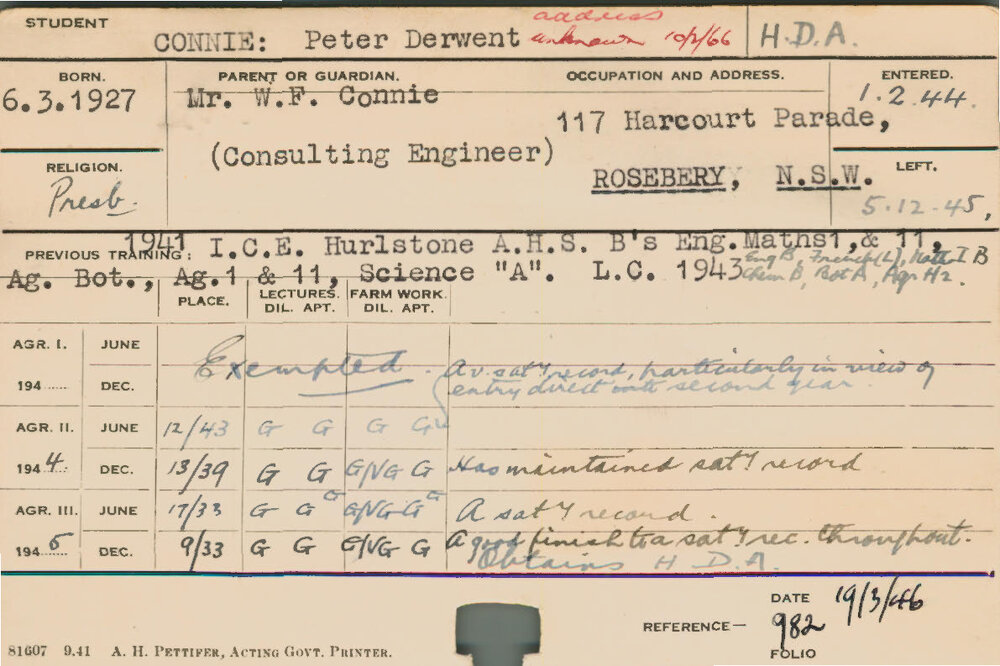 STUDENT
CONNIE: Peter Derwent address unknown 10/2/66 H.D.A.
BORN. PARENT OR GUARDIAN. OCCUPATION AND ADDRESS. ENTERED.
6.3.1927 Mr. W.F. Connie 1.2.44.
117 Harcourt Parade,
(Consulting Engineer)
RELIGION. ROSEBERY, N.S.W. LEFT.
Presb. 5.12.45,
PREVIOUS TRAINING: 1941 I.C.E. Hurlstone A.H.S. B's Eng.Maths1,& 11,
Ag. Bot., Ag.1 & 11, Science "A". L.C. 1943 Eng B, French (L), Math I B
Chem B, Bot A, Agr H2.
PLACE. LECTURES. DIL. APT. FARM WORK. DIL. APT.
AGR. I. JUNE
194...... DEC. Exempted. A v. sat'y record, particularly in view of
entry direct into second year.
AGR. II. JUNE 12/43 G G G G
194 4. DEC. 13/39 G G G/VG G Has maintained sat'y record
AGR. III. JUNE 17/33 G G G G/VG G G A sat'y record.
194 5 DEC. 9/33 G G G/VG G A good finish to a sat'y rec. throughout.
Obtains H D.A.
DATE 19/3/46
REFERENCE— 982
FOLIO
81607 9.41 A. H. PETTIFER, ACTING GOVT. PRINTER.